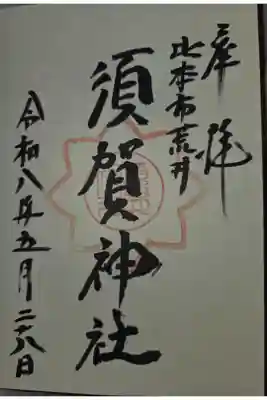 奉拝
北本市荒井
須賀神社
令和八年五月二十八日